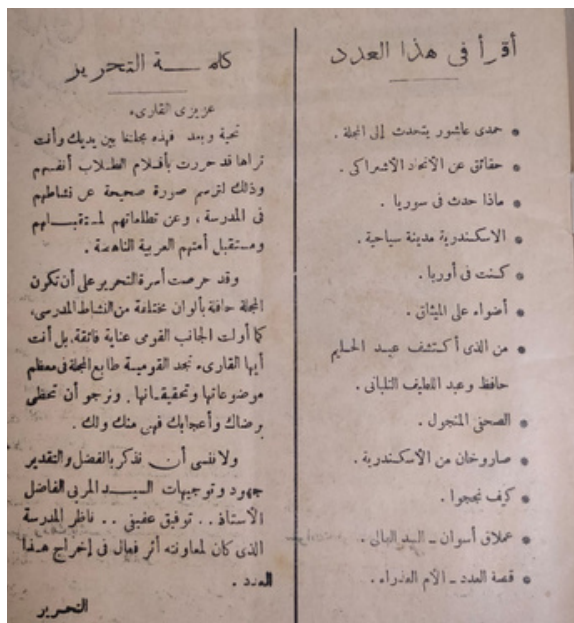 أقرأ فى هذا العدد
حمدى عاشور يتحدث إلى المجلة .
حقائق عن الاتحاد الاشتراكى .
ماذا حدث فى سوريا .
الاسكندرية مدينة سياحية .
كنت فى أوربا .
أضواء على الميثاق .
من الذى أكتشف عبد الحليم
حافظ وعبد اللطيف التلبانى .
الصحفى المتجول .
صاروخان من الأسكندرية .
كيف نجحوا .
عملاق أسوان ــ السد العالى .
قصة العدد ــ الأم العذراء .
كلمــة التحرير
عزيزى القارىء
تحية وبعد فهذه مجلتنا بين يديك وأنت
تراها قد حررت بأقلام الطلاب أنفسهم
وذلك لترسم صورة صحيحة عن نشاطهم
فى المدرسة ، وعن تطلعاتهم لمستقبلهم
ومستقبل أمتهم العربية الناهضة .
وقد حرصت أسرة التحرير على أن تكون
المجلة حافلة بألوان مختلفة من النشاط المدرسى،
كما أولت الجانب القومى عناية فائقة، بل أنت
أيها القارىء تجد القومية طابع المجلة فى معظم
موضوعاتها وتحقيقاتها . ونرجو أن تحظى
برضاك وأعجابك فهى منك ولك .
ولا ننسى أن نذكر بالفضل والتقدير
جهود وتوجيهات السيد المربى الفاضل
الأستاذ . . توفيق عفيفى . . ناظر المدرسة
الذى كان لمعاونته أثر فعال فى إخراج هذا
العدد .
التحرير